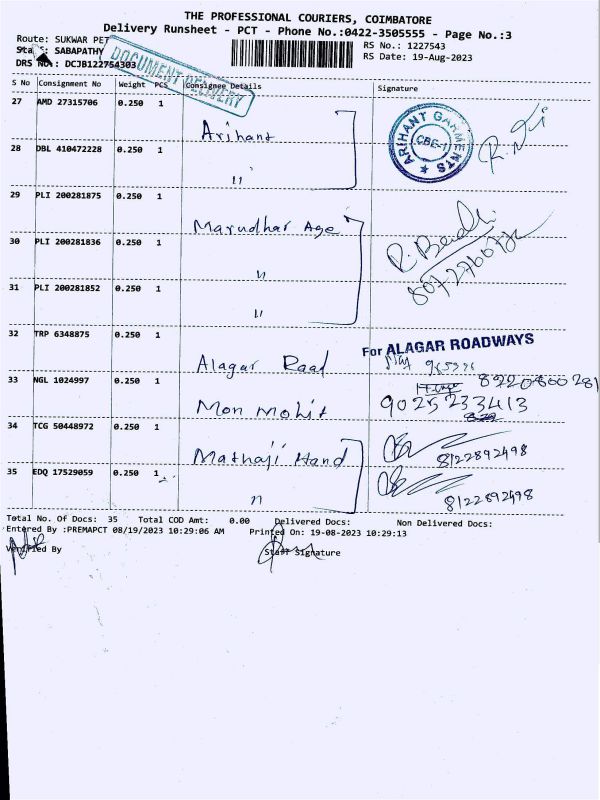 THE PROFESSIONAL COURIERS, COIMBATORE
Delivery Runsheet - PCT - Phone No.:0422-3505555 - Page No.:3
Route: SUKWAR PET
RS No.: 1227543
Staff: SABAPATHY
RS Date: 19-Aug-2023
DRS No: DCJB122754303
DOCUMENT DELIVERY
S No Consignment No Weight PCS Consignee Details Signature
27 AMD 27315706 0.250 1 Arihant
ARIHANT GARMENTS CBE-1
28 DBL 410472228 0.250 1 "
29 PLI 200281875 0.250 1 Marudhar Age
30 PLI 200281836 0.250 1 "
31 PLI 200281852 0.250 1 "
32 TRP 6348875 0.250 1 Alagar Road
For ALAGAR ROADWAYS
33 NGL 1024997 0.250 1 Mon Mohit
8220800281
9025233413
34 TCG 50448972 0.250 1 Mathaji Hand
8122892498
35 EDQ 17529059 0.250 1 "
8122892498
Total No. Of Docs: 35 Total COD Amt: 0.00 Delivered Docs: Non Delivered Docs:
Entered By :PREMAPCT 08/19/2023 10:29:06 AM Printed On: 19-08-2023 10:29:13
Verified By Staff Signature